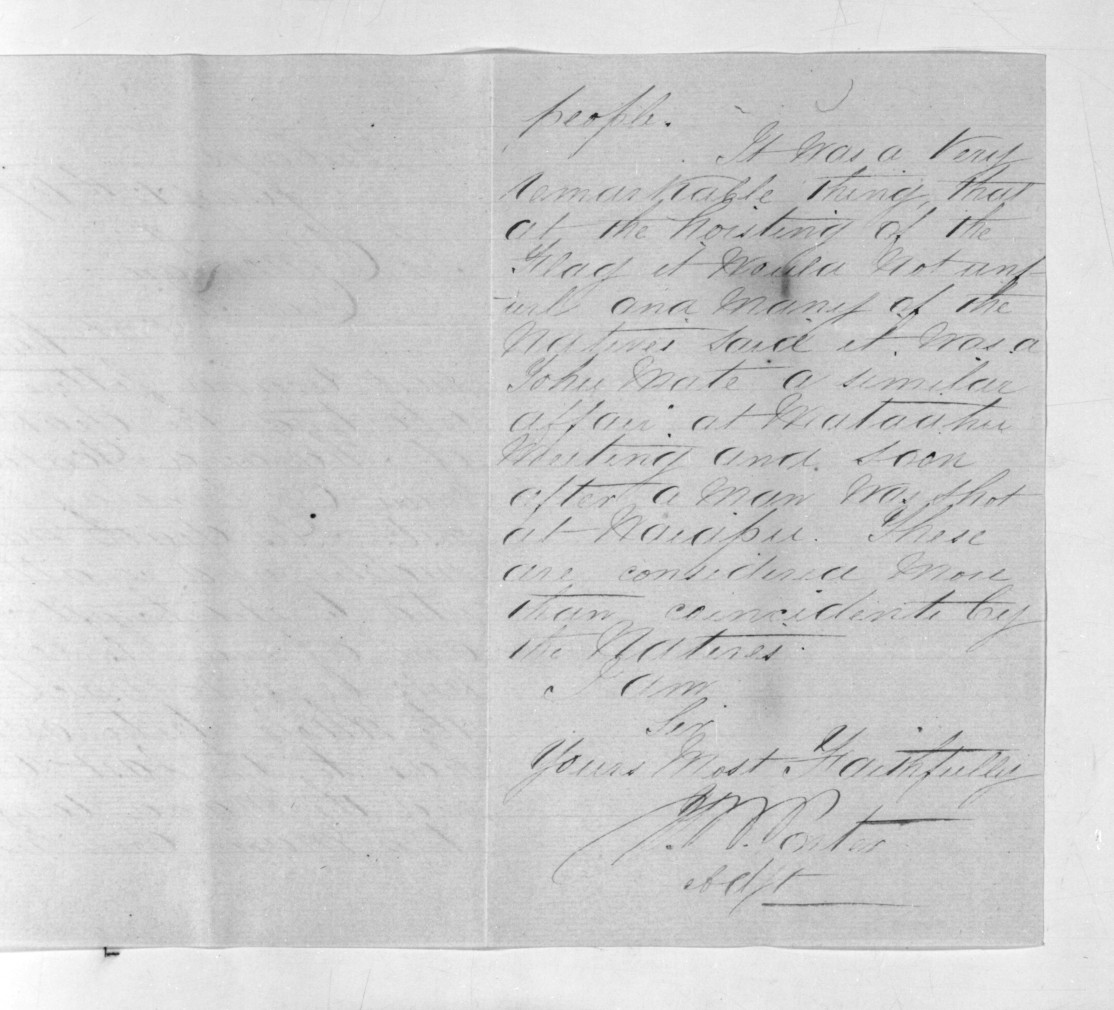 people.
It was a Very
remarkable thing, that
at the hoisting of the
Flag it Would Not unf
url and Many of the
Natives said it Was a
Tohu Mate a similar
affair at Mataahu
Meeting and soon
after a Man Was shot
at Waiapu. These
are considered More
than coincidents by
the Natives.
I am
Sir
Yours Most Faithfully
Porter
Adjt